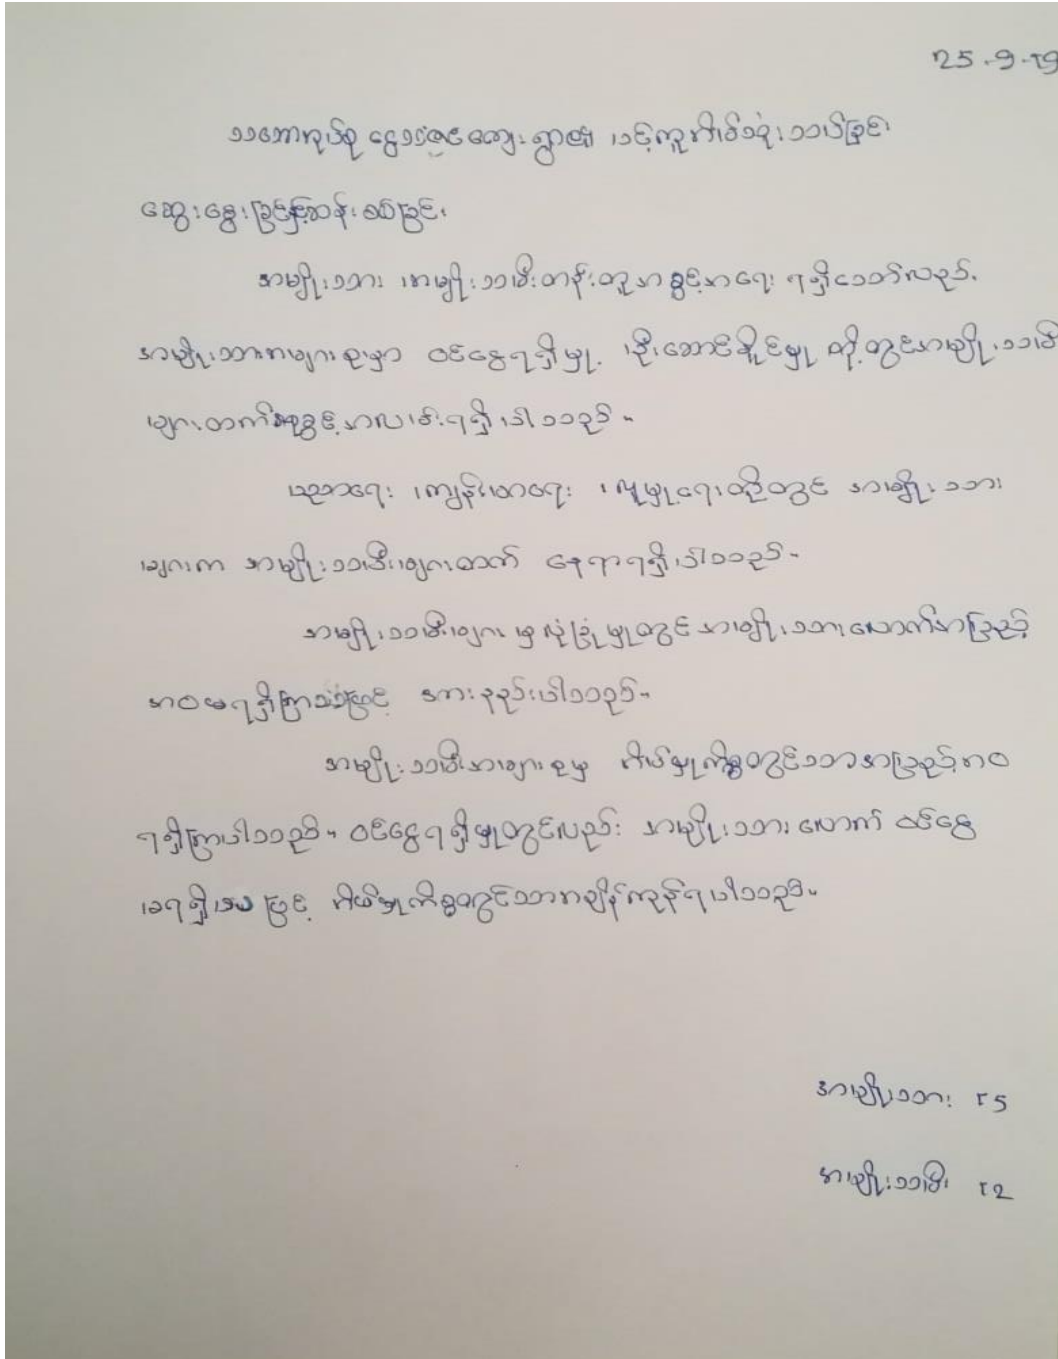 25-9-19
သဘောကုပ်စု ငွေ ကျေးရွာ၏
ဆွေးနွေးခြင်းနှင့်ဆန်းစစ်ခြင်း
အမျိုးသား၊ အမျိုးသမီးတန်းတူအခွင့်အရေး ရရှိသော်လည်း
အမျိုးသားအများစုမှာ ဝင်ငွေရရှိမှု၊ ဦးဆောင်နိုင်မှု တို့တွင်အမျိုးသမီး
များထက်အခွင့်အလမ်းရရှိပါသည်။
ပညာရေး၊ ကျန်းမာရေး၊ လူမှုရေးတို့တွင် အမျိုးသား
များက အမျိုးသမီးများထက် နေရာရရှိပါသည်။
အမျိုးသမီးများမှ လုံခြုံမှုတွင် အမျိုးသားလောက်အပြည့်
အဝမရရှိကြသဖြင့် အားနည်းပါသည်။
အမျိုးသမီးအများစုမှ အိမ်မှုကိစ္စတွင်သာအပြည့်အဝ
ရရှိကြပါသည်။ ဝင်ငွေရရှိမှုတွင်လည်း အမျိုးသားလောက် ဝင်ငွေ
မရရှိ ဖြင့် အိမ်မှုကိစ္စတွင်သာအချိန်ကုန်ရပါသည်။
အမျိုးသား ၁၅
အမျိုးသမီး ၁၂